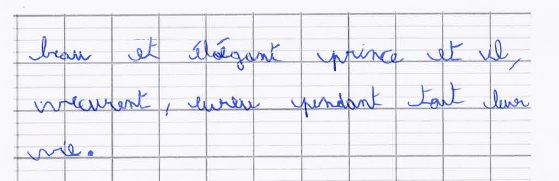 beau et éloégant prince et il,
vrecurent, eureu pendant tout leur
vie.